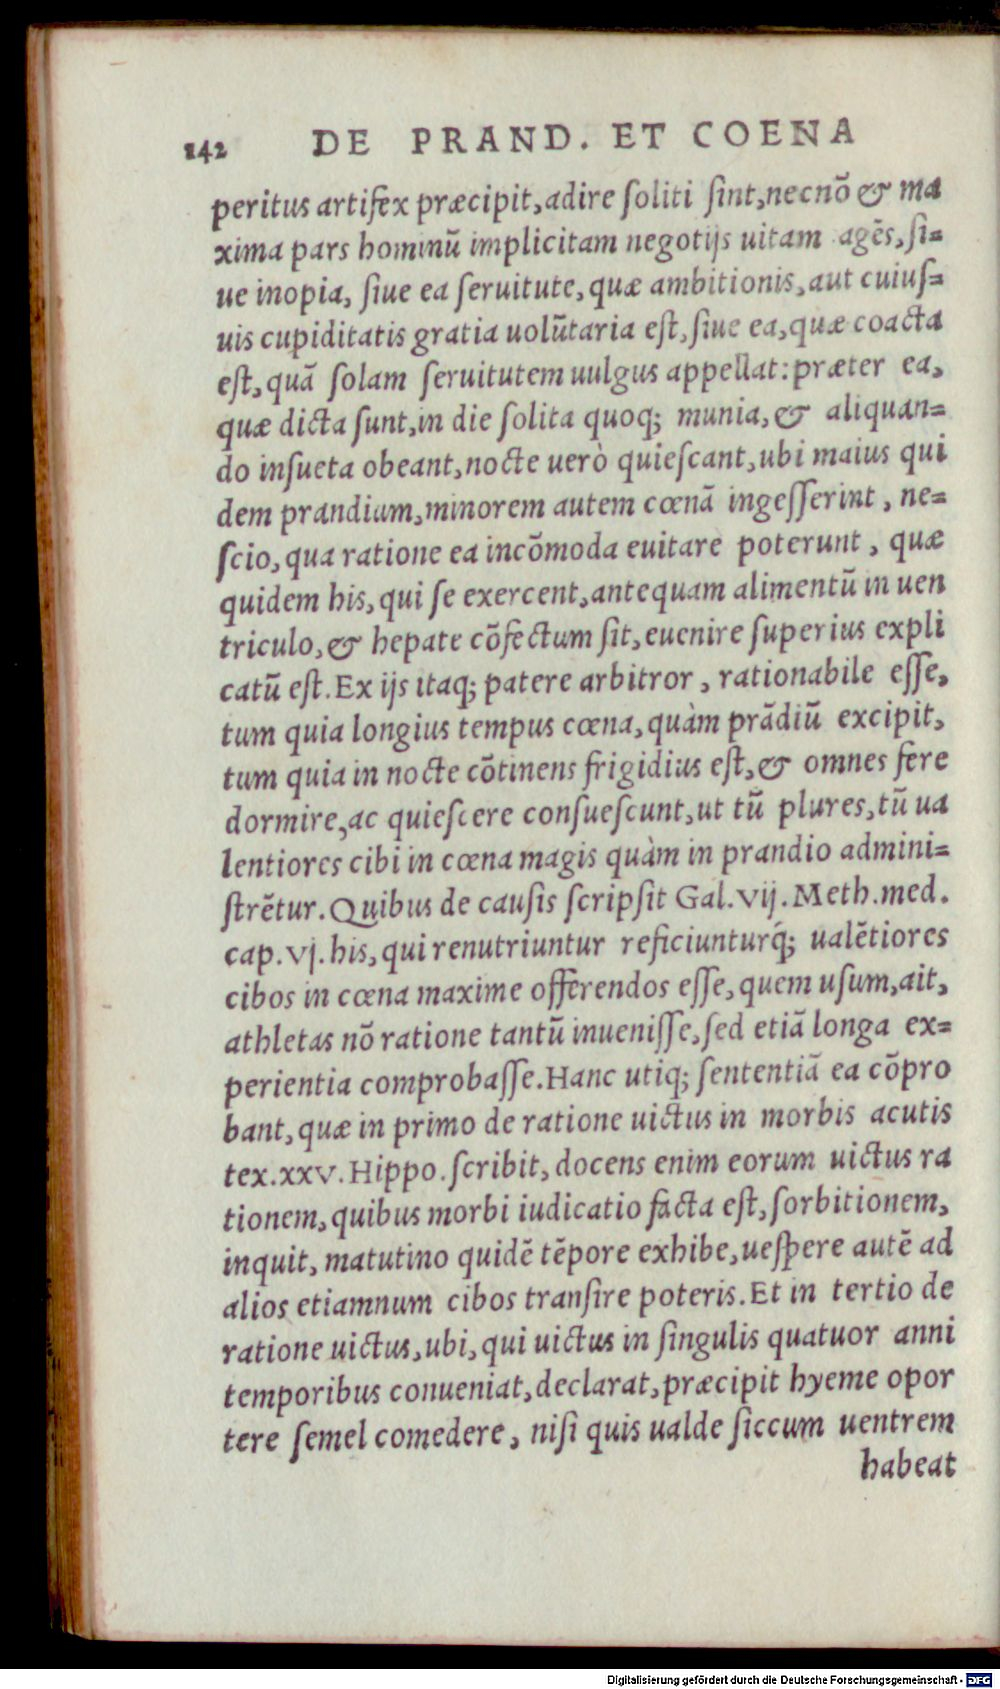 142 DE PRAND. ET COENA
peritus artifex præcipit, adire soliti sint, necnō & ma
xima pars hominū implicitam negotijs uitam agēs, si=
ue inopia, siue ea seruitute, quæ ambitionis, aut cuius=
uis cupiditatis gratia uolūtaria est, siue ea, quæ coacta
est, quā solam seruitutem uulgus appellat: præter ea,
quæ dicta sunt, in die solita quoq; munia, & aliquan=
do insueta obeant, nocte uerò quiescant, ubi maius qui
dem prandium, minorem autem cœnā ingesserint, ne=
scio, qua ratione ea incōmoda euitare poterunt, quæ
quidem his, qui se exercent, antequam alimentū in uen
triculo, & hepate cōfectum sit, euenire superius expli
catū est. Ex ijs itaq; patere arbitror, rationabile esse,
tum quia longius tempus cœna, quàm prādiū excipit,
tum quia in nocte cōtinens frigidius est, & omnes fere
dormire, ac quiescere consuescunt, ut tū plures, tū ua
lentiores cibi in cœna magis quàm in prandio admini=
strētur. Quibus de causis scripsit Gal. Vij. Meth. med.
cap. Vj. his, qui renutriuntur reficiunturq́; ualētiores
cibos in cœna maxime offerendos esse, quem usum, ait,
athletas nō ratione tantū inuenisse, sed etiā longa ex=
perientia comprobasse. Hanc utiq; sententiā ea cōpro
bant, quæ in primo de ratione uictus in morbis acutis
tex. xxv. Hippo. scribit, docens enim eorum uictus ra
tionem, quibus morbi iudicatio facta est, sorbitionem,
inquit, matutino quidē tēpore exhibe, uespere autē ad
alios etiamnum cibos transire poteris. Et in tertio de
ratione uictus, ubi, qui uictus in singulis quatuor anni
temporibus conueniat, declarat, præcipit hyeme opor
tere semel comedere, nisi quis ualde siccum uentrem
habeat
Digitalisierung gefördert durch die Deutsche Forschungsgemeinschaft - DFG